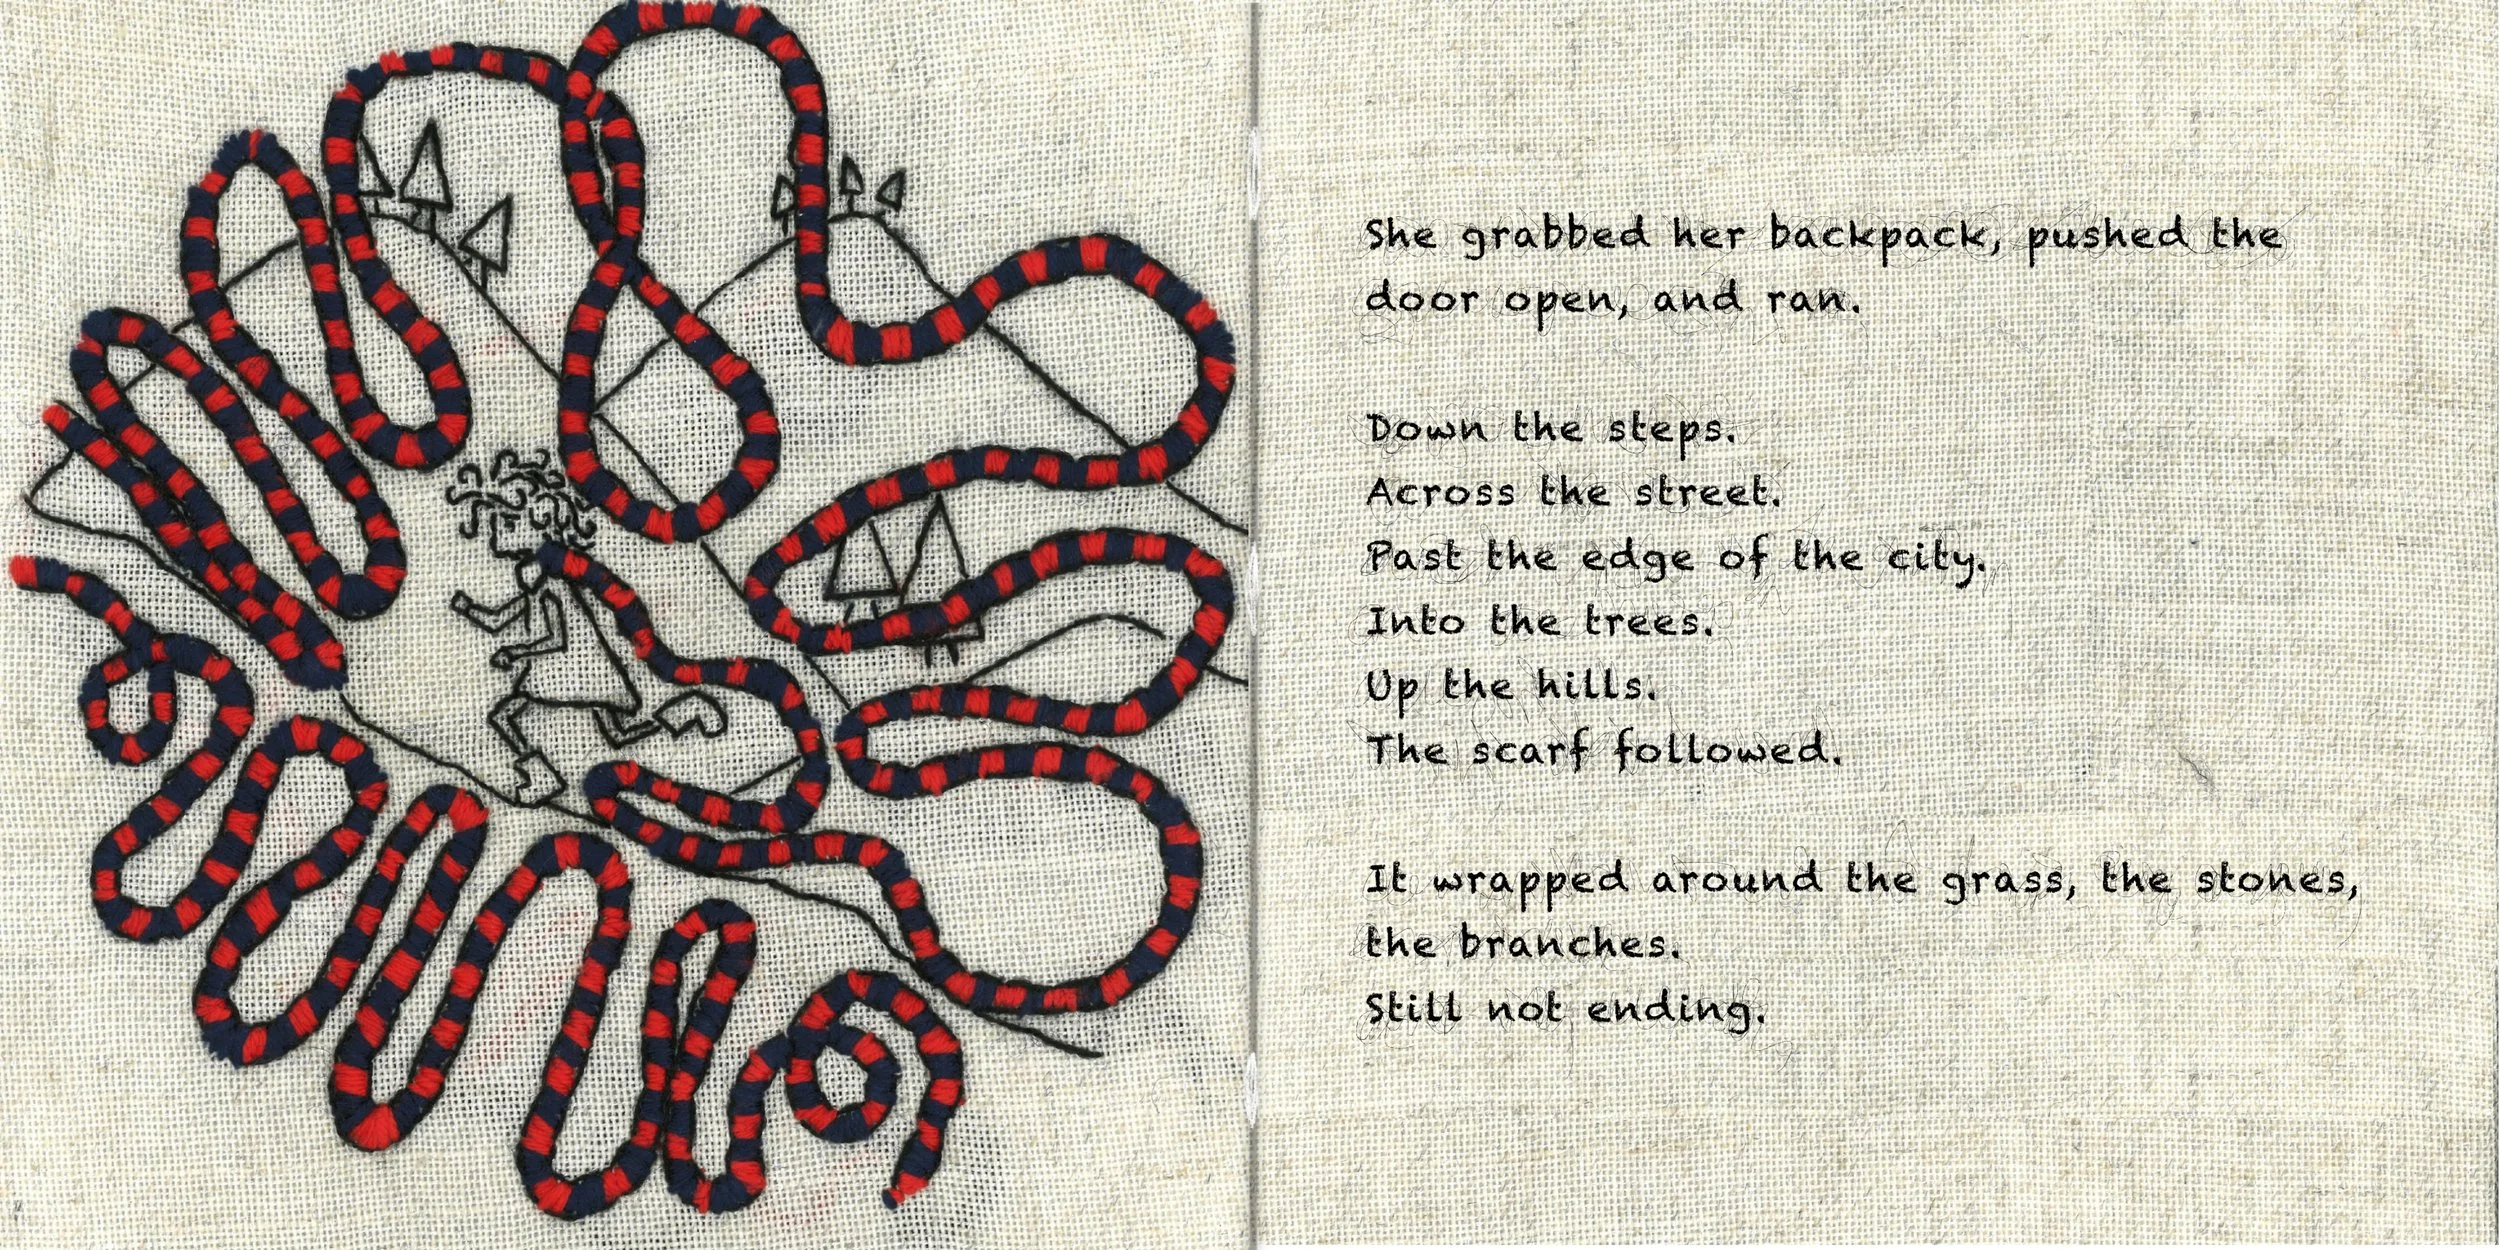 She grabbed her backpack, pushed the
door open, and ran.
Down the steps.
Across the street.
Past the edge of the city.
Into the trees.
Up the hills.
The scarf followed.
It wrapped around the grass, the stones,
the branches.
Still not ending.